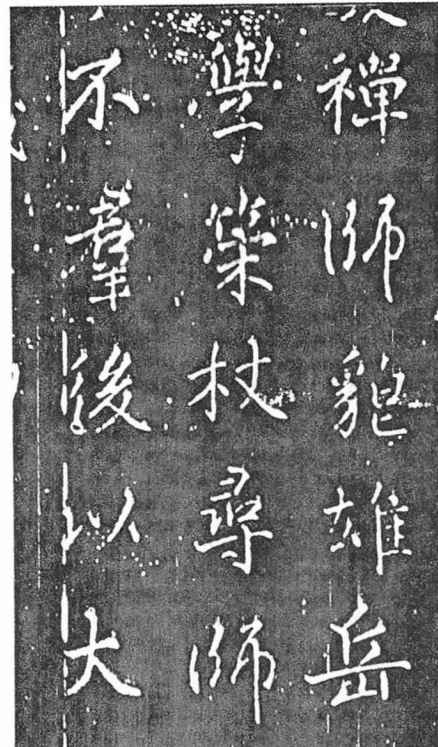 禪師貌雄岳
學策杖尋師
不羣後以大